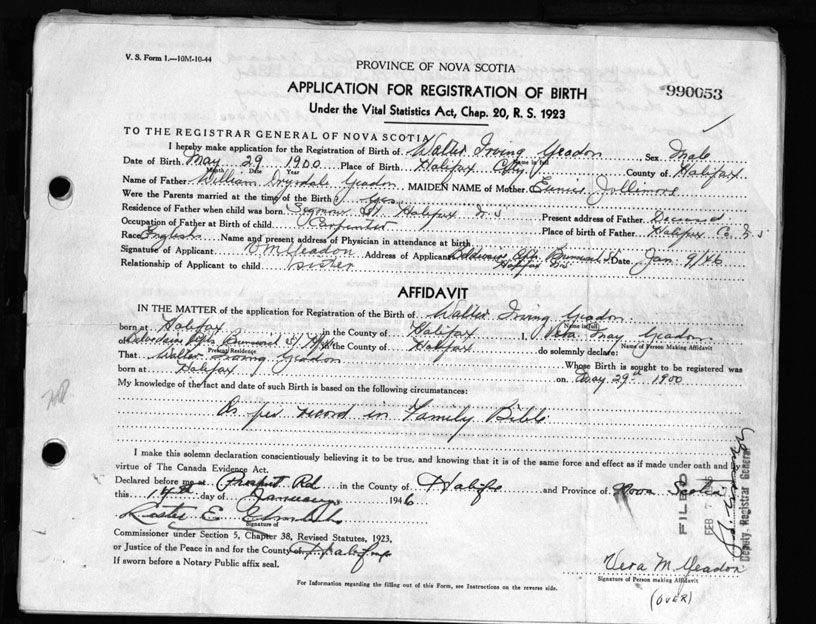 V. S. Form 1.—10M-10-44
PROVINCE OF NOVA SCOTIA
APPLICATION FOR REGISTRATION OF BIRTH
990053
Under the Vital Statistics Act, Chap. 20, R. S. 1923
TO THE REGISTRAR GENERAL OF NOVA SCOTIA
I hereby make application for the Registration of Birth of Walter Irving Yeadon Sex Male
Name in full
Date of Birth May 29 1900 Place of Birth Halifax City County of Halifax
Month Date Year
Name of Father William Drysdale Yeadon MAIDEN NAME of Mother Eunice Jollimore
Were the Parents married at the time of the Birth? Yes
Residence of Father when child was born St. Halifax N S Present address of Father Deceased
Occupation of Father at Birth of child Carpenter Place of birth of Father Halifax Co N S
Race English Name and present address of Physician in attendance at birth
Signature of Applicant V M Yeadon Address of Applicant Apts Brunswick St Date Jan 9/46
Relationship of Applicant to child sister Halifax N S
AFFIDAVIT
IN THE MATTER of the application for Registration of the Birth of Walter Irving Yeadon
(Name in full)
born at Halifax in the County of Halifax I, Vera May Yeadon
Name of Person Making Affidavit
of Apts Brunswick St Hfx in the County of Halifax do solemnly declare:
Present Residence
That Walter Irving Yeadon Whose Birth is sought to be registered was
born at Halifax on May 29th 1900
My knowledge of the fact and date of such Birth is based on the following circumstances:
As per record in Family Bible
I make this solemn declaration conscientiously believing it to be true, and knowing that it is of the same force and effect as if made under oath and by
virtue of The Canada Evidence Act.
Declared before me at Prospect Rd in the County of Halifax and Province of Nova Scotia
this 14th day of January 1946
Lester E
Signature of
Commissioner under Section 5, Chapter 38, Revised Statutes, 1923,
or Justice of the Peace in and for the County of Halifax
If sworn before a Notary Public affix seal.
FILED
FEB 7
Deputy Registrar General
Vera M. Yeadon
Signature of Person making Affidavit
For Information regarding the filling out of this Form, see Instructions on the reverse side.
(OVER)